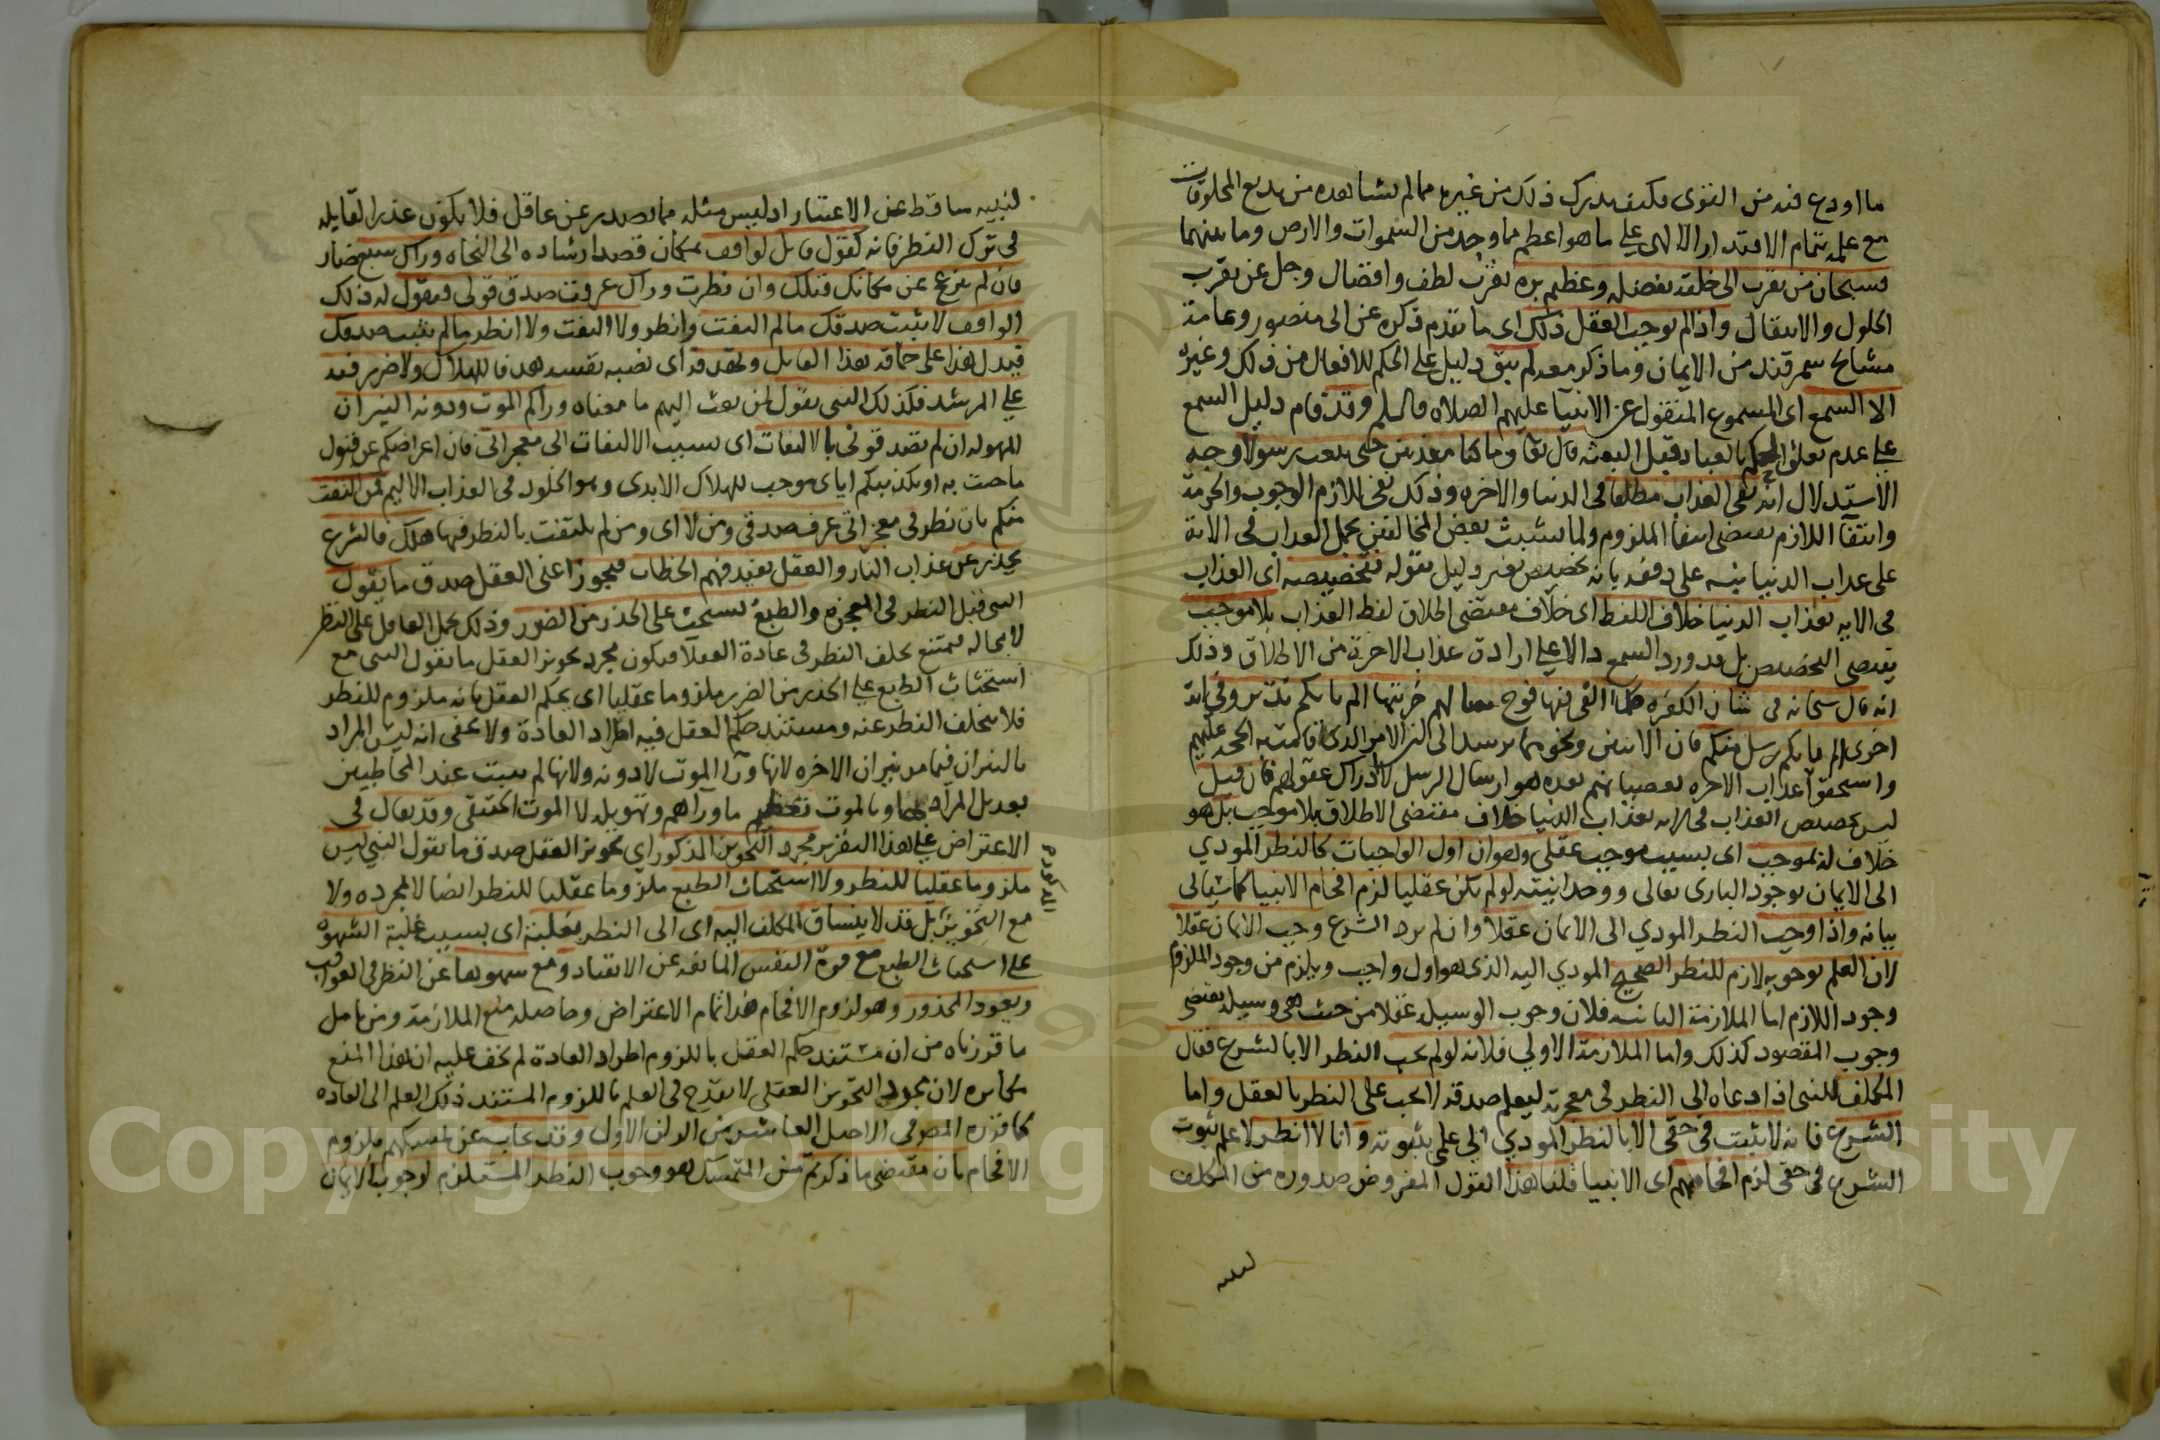 ما اودع فيه من القوى فكيف يدرك ذلك من غيره مما لم يشاهده من بديع المخلوقات
مع علمه بتمام الاقتدار الالهي على ما هو اعظم مما وجد من السموات والارض وما بينهما
فسبحان من تقرب الى خلقه بفضله وعظيم بره تقرب لطف وافضال وجل عن تقرب
الحلول والانتقال واذا لم يوجب العقل ذلك اى ما تقدم ذكره عن ابي منصور وعامة
مشايخ سمرقند من الايمان وما ذكر معه لم يبق دليل على الحكم للافعال من ذلك وغيره
الا السمع اى المسموع المنقول عن الانبيآ عليهم الصلاه والسلم وقد قام دليل السمع
على عدم تعلق الحكم بالعباد قبل البعثه قال تعالى وما كنا معذبين حتى نبعث رسولا وجه
الاستدلال انه نفى العذاب مطلقا في الدنيا والاخره وذلك نفي للازم الوجوب والحرمة
وانتفآ اللازم يقتضي انتفا الملزوم ولما تشبث بعض المخالفين بحمل العذاب في الاية
على عذاب الدنيا نبه على دفعه بانه تخصيص بغير دليل بقوله فتخصيصه اى العذاب
في الايه بعذاب الدنيا خلاف اللفظ اى خلاف مقتضى اطلاق لفظ العذاب بلا موجب
يقتضي التخصيص بل قد ورد السمع دالا على ارادة عذاب الاخرة من الاطلاق وذلك
انه قال سبحانه في شان الكفره كلما القى فيها فوج سالهم خزنتها الم ياتكم نذير وفي اية
اخرى الم ياتكم رسل منكم فان الايتين ونحوهما يرشد الى ان الامر الذي قامت به الحجة عليهم
واستحقوا عذاب الاخره بعصيانهم بعده هو ارسال الرسل لا ادراك عقولهم فان قيل
ليس تخصيص العذاب في الايه بعذاب الدنيا خلاف مقتضى الاطلاق بلا موجب بل هو
خلاف له بموجب اى بسبب موجب عقلي وهو ان اول الواجبات كالنظر المودي
الى الايمان بوجود البارى تعالى ووحدانيته لو لم يكن عقليا لزم افحام الانبيا كما سياتى
بيانه واذا وجب النظر المودي الى الايمان عقلا وان لم يرد الشرع وجب الايمان عقلا
لان العلم بوجوبه لازم للنظر الصحيح المودي اليه الذى هو اول واجب ويلزم من وجود الملزوم
وجود اللازم اما الملازمة الثانيه فلان وجوب الوسيله عقلا من حيث هي وسيله يقتضى
وجوب المقصود كذلك واما الملازمة الاولي فلانه لو لم يجب النظر الا بالشرع فقال
المكلف للنبى اذا دعاه الى النظر في معجزته ليعلم صدقه لا يجب على النظر بالعقل واما
الشرع فانه لا يثبت في حقى الا بالنظر المودي الي علمي بثبوته وانا لا انظر لاعلم ثبوت
الشرع في حقي لزم افحامهم اى الانبيا قلنا هذا القول المفروض صدوره من المكلف
لنبيه
لنبيه ساقط عن الاعتبار اذ ليس مثله مما يصدر عن عاقل فلا يكون عذرا لقايله
في ترك النظر فانه كقول قايل لواقف بمكان قصد ارشاده الى النجاه وراك سبع ضار
فان لم تنزعج عن مكانك قتلك وان نظرت وراك عرفت صدق قولي فيقول له ذلك
الواقف لا يثبت صدقك ما لم التفت وانظر ولا التفت ولا انظر ما لم يثبت صدقك
فيدل هذا على حماقة هذا القايل وتهدفه اى نصبه نفسه هدفا للهلاك ولا ضرر فيه
على المرشد فكذلك النبي يقول لمن بعث اليهم ما معناه وراكم الموت ودونه النيران
المهوله ان لم تصدقوني بالالتفات اى بسبب الالتفات الى معجزاتى فان اعراضكم عن قبول
ما جئت به او تكذيبكم اياى موجب للهلاك الابدى وهو الخلود في العذاب الاليم فمن التفت
منكم بان نظر في معجزاتى عرف صدقي ومن لا اى ومن لم يلتفت بالنظر فيها هلك فالشرع
يحذر عن عذاب النار والعقل يفيد فهم الخطاب فيجوز اعنى العقل صدق ما يقول
النبي قبل النظر في المعجزه والطبع يستحث على الحذر من الضرر وذلك يحمل العاقل على النظر
لا محاله فيمتنع تخلف النظر في عادة العقلا فيكون مجرد تجويز العقل ما يقول النبى مع
استحثاث الطبع على الحذر من الضرر ملزوما عقليا اى يحكم العقل بانه ملزوم للنظر
فلا يتخلف النظر عنه ومستند حكم العقل فيه اطراد العادة ولا يخفى انه ليس المراد
بالنيران فيما مر نيران الاخره لانها ورآ الموت لا دونه ولانها لم يثبت عند المخاطبين
بعد بل المراد بها وبالموت تعظيم ما ورآهم وتهويله لا الموت الحقيقي وقد يقال في
الاعتراض على هذا التقرير مجرد التجويز المذكور اي تجويز العقل صدق ما يقول النبي ليس
ملزوما عقليا للنظر ولا استحثاث الطبع ملزوما عقليا للنظر ايضا لا لمجرده ولا
مع التجويز بل قد لا ينساق المكلف اليه اى الى النظر بغلبة اى بسبب غلبة الشهوه
على استحثاث الطبع مع قوة النفس المانعه عن الانقياد ومع سهوها عن النظر في العواقب
ويعود المحذور وهو لزوم الافحام هذا تمام الاعتراض وحاصله منع الملازمة ومن تامل
ما قررناه من ان مستند حكم العقل باللزوم اطراد العادة لم يخف عليه ان هذا المنع
مكابره لان تجويز التجويز العقلى لا يقدح في العلم باللزوم المستند ذلك العلم الى العاده
كما قرره المصنف في الاصل العاشر من الركن الاول وقد يجاب عن تمسكهم بلزوم
الافحام بان مقتضى ما ذكرتم من المتمسك هو وجوب النظر المستلزم لوجوب الايمان
المذكور